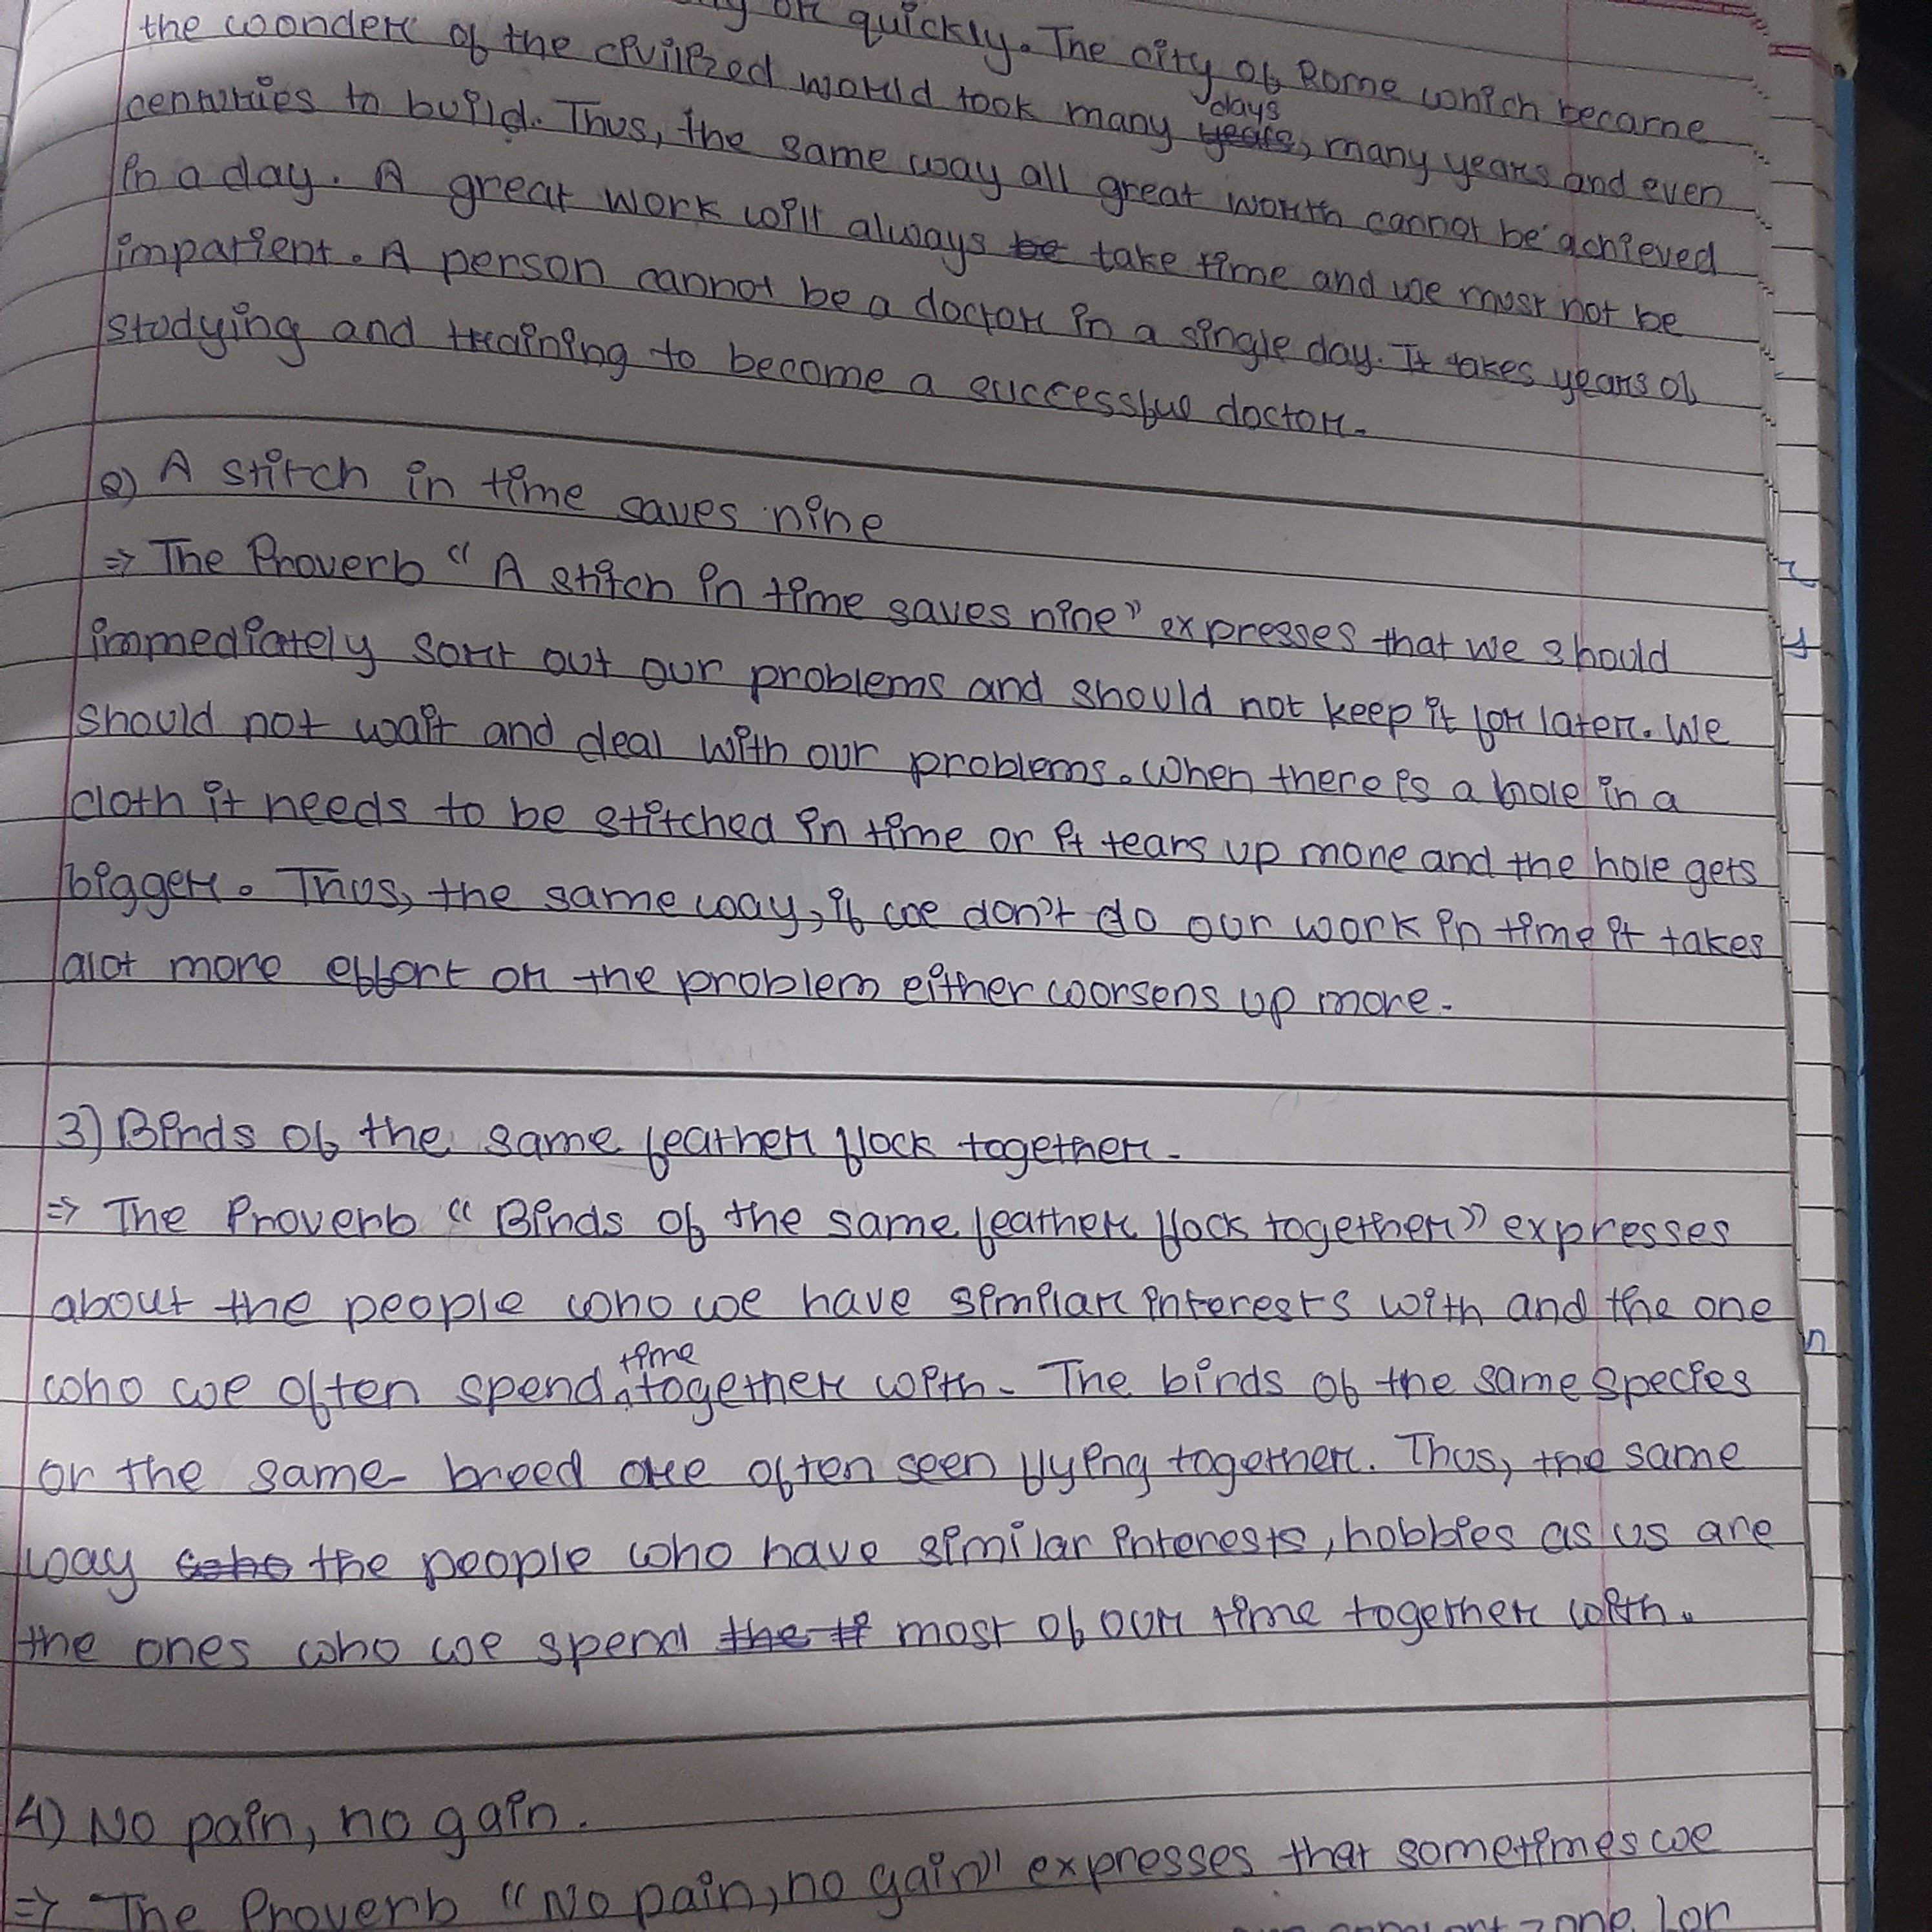 or quickly. The city of Rome which became
the wonder of the civilized world took many days years, many years and even
centuries to build. Thus, the same way all great worth cannot be achieved
in a day. A great work will always be take time and we must not be
impatient. A person cannot be a doctor in a single day. It takes years of
studying and training to become a successful doctor.
2) A stitch in time saves nine
⇒ The Proverb "A stitch in time saves nine" expresses that we should
immediately sort out our problems and should not keep it for later. We
should not wait and deal with our problems. When there is a hole in a
cloth it needs to be stitched in time or it tears up more and the hole gets
bigger. Thus, the same way, if we don't do our work in time it takes
alot more effort or the problem either worsens up more.
3) Birds of the same feather flock together.
⇒ The Proverb "Birds of the same feather flock together" expresses
about the people who we have similar interests with and the one
who we often spend time together with. The birds of the same species
or the same breed are often seen flying together. Thus, the same
way who the people who have similar interests, hobbies as us are
the ones who we spend the ti most of our time together with.
4) No pain, no gain.
⇒ The Proverb "No pain, no gain" expresses that sometimes we
zone for